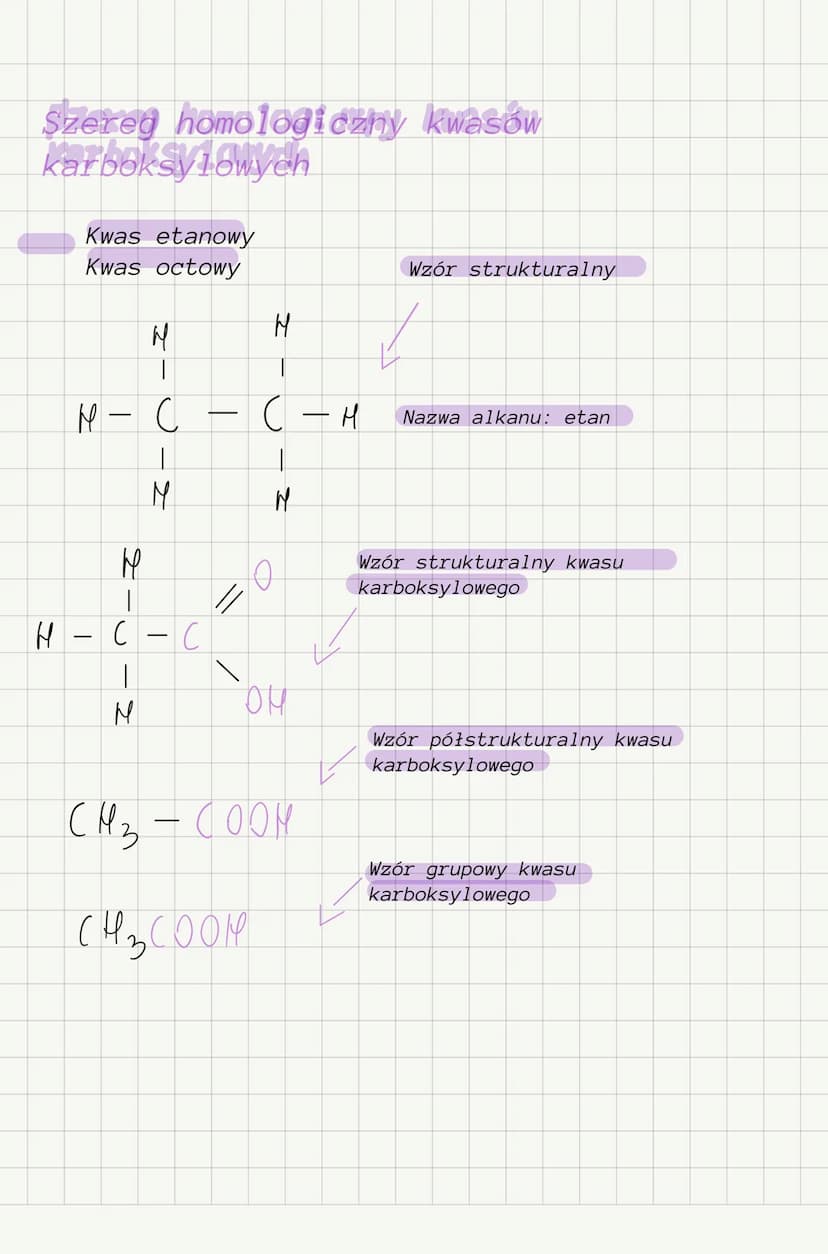 Szereg homologiczny kwasów
karboksylowych
Kwas etanowy
Kwas octowy
Wzór strukturalny
H H
| |
H – C – C – H
Nazwa alkanu: etan
| |
H H
Wzór strukturalny kwasu
karboksylowego
H
O
| //
H – C – C
| \
H
OH
Wzór półstrukturalny kwasu
karboksylowego
CH3 – COOH
Wzór grupowy kwasu
karboksylowego
CH3COOH